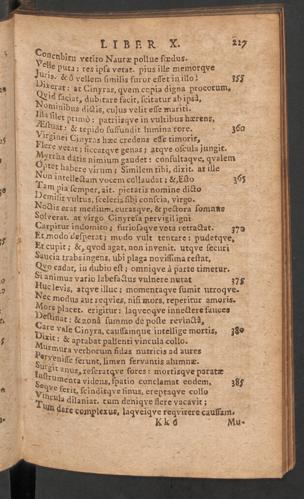 LIBER X. 227
Concubitu vetito Naturæ pollue fœdus.
Velle puta: res ipsa vetat. pius ille memorqve
Juris. & ô vellem similis furor esset in illo! 355
Dixerat: at Cinyras, qvem copia digna procorum,
Qvid faciat, dubitare facit, scitatur ab ipsâ,
Nominibus dictis, cujus velit esse mariti.
Illa silet primò: patriisqve in vultibus hærens,
Æstuat: & tepido suffundit lumina rore. 360
Virginei Cinyras hæc credens esse timoris,
Flere vetat; siccatqve genas; atqve oscula jungit.
Myrrha datis nimium gaudet: consultaqve, qvalem
Optet habere virum; Similem tibi, dixit. at ille
Non intellectam vocem collaudat; &, Esto 365
Tam pia semper, ait. pietatis nomine dicto
Demisit vultus, sceleris sibi conscia, virgo.
Noctis erat medium. curasqve, & pectora somnus
Solverat. at virgo Cinyreïa pervigil igni
Carpitur indomito; furiosaqve vota retractat. 370
Et modò desperat; modo vult tentare: pudetqve,
Et cupit; &, qvod agat, non invenit. utqve securi
Saucia trabs ingens, ubi plaga novissima restat,
Qvo cadat, in dubio est; omniqve à parte timetur.
Si animus vario labefactus vulnere nutat 375
Huc levis, atqve illuc; momentaqve sumit utroqve.
Nec modus aut reqvies, nisi mors, reperitur amoris.
Mors placet. erigitur: laqveoqve innectere fauces
Destinat: & zonâ summo de poste revinctâ,
Care vale Cinyra, caussamqve intellige mortis, 380
Dixit: & aptabat pallenti vincula collo.
Murmura verborum fidas nutricis ad aures
Pervenisse ferunt, limen servantis alumnæ.
Surgit anus, reseratqve fores: mortisqve paratæ
Instrumenta videns, spatio conclamat eodem, 385
Seqve ferit, scinditqve sinus, ereptaqve collo
Vincula dilaniat. tum deniqve flere vacavit;
Tum dare complexus, laqveiqve reqvirere caussam.
Kk d Mu-